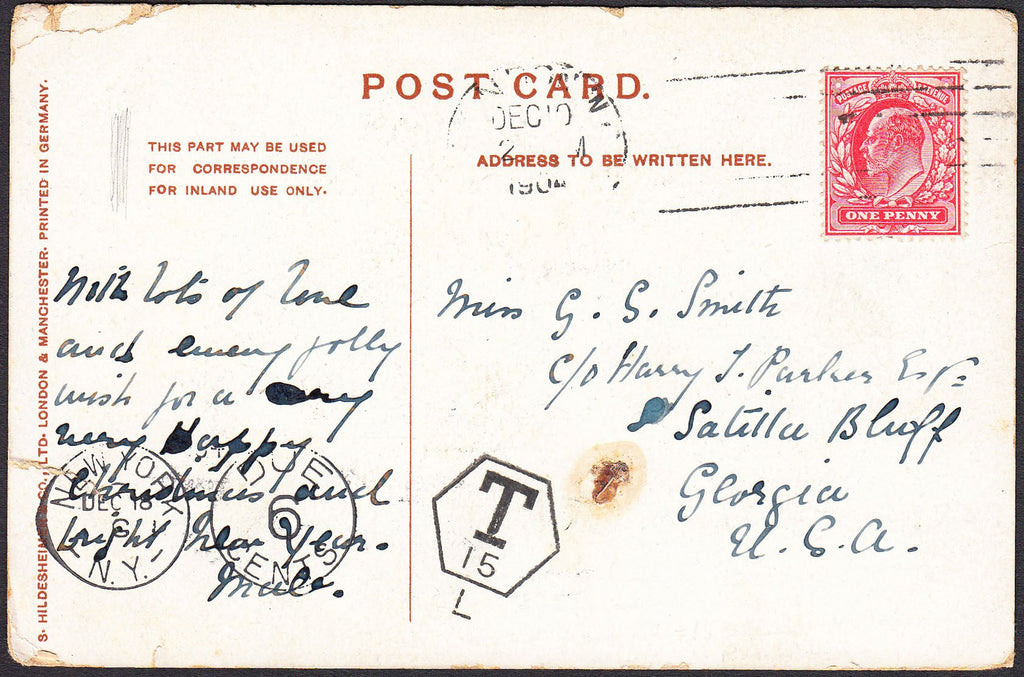 POST CARD.
THIS PART MAY BE USED
FOR CORRESPONDENCE
FOR INLAND USE ONLY.
ADDRESS TO BE WRITTEN HERE.
S. HILDESHEIMER & CO., LTD. LONDON & MANCHESTER. PRINTED IN GERMANY.
DEC 10
2
1904
POSTAGE REVENUE
ONE PENNY
With lots of love
and every jolly
wish for a
very happy
Christmas and
bright New Year.
Miss G. S. Smith
c/o Harry J. Parker Esq=
Satilla Bluff
Georgia
U.S.A.
NEW YORK
DEC 18
N.Y.
DUE
6
CENTS
T
15
L